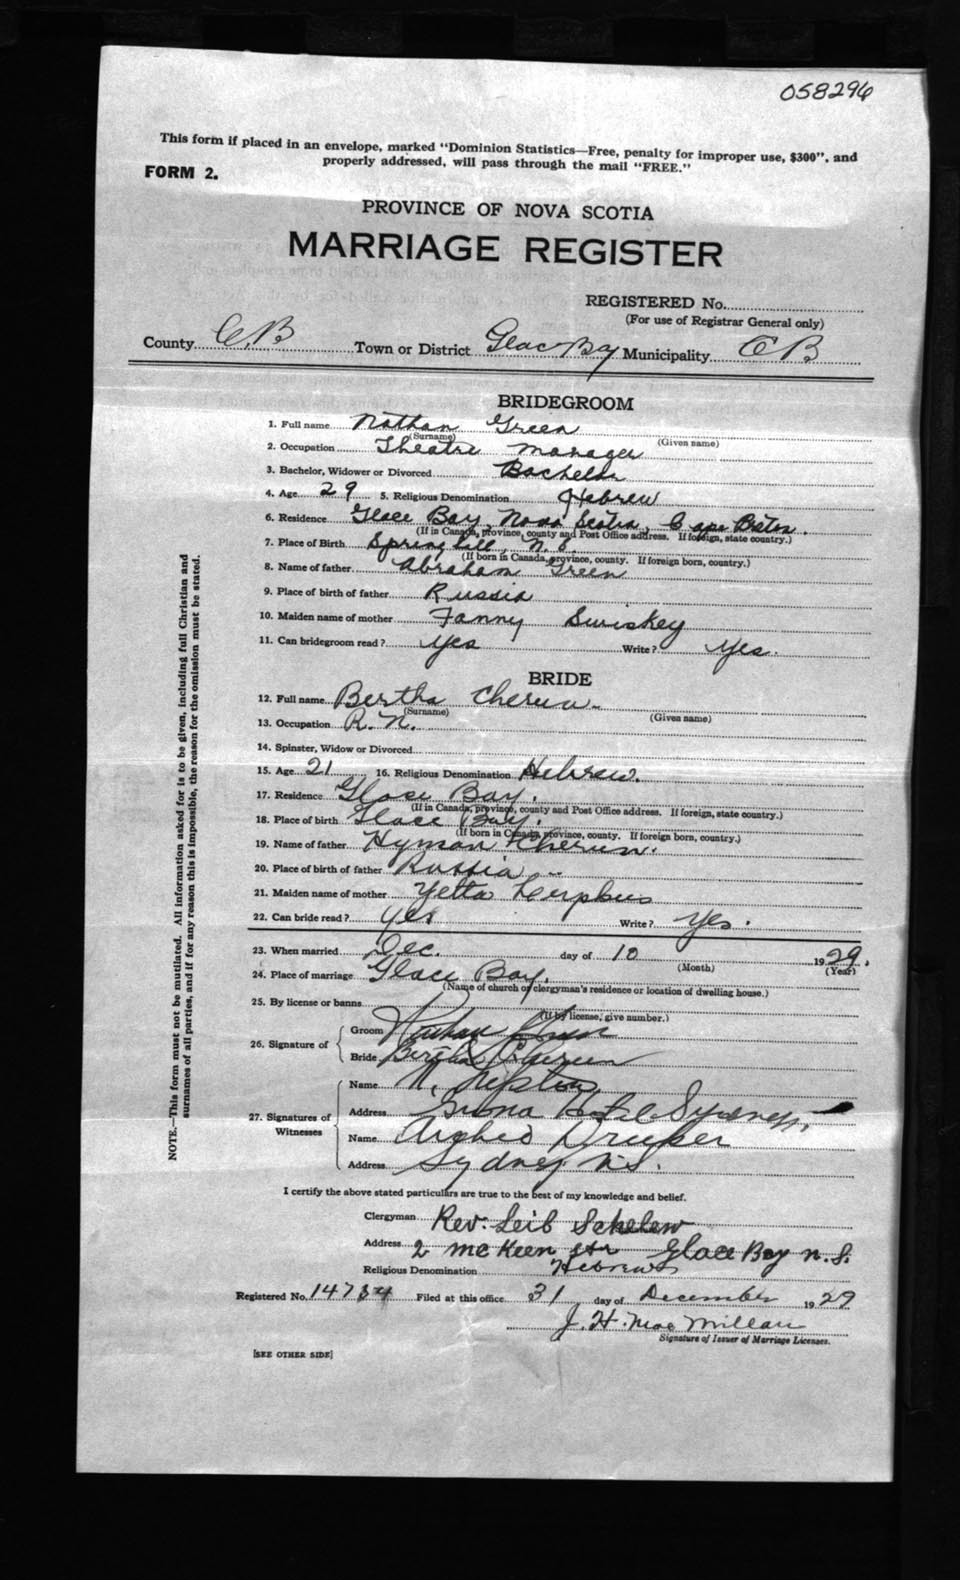 058296
This form if placed in an envelope, marked "Dominion Statistics—Free, penalty for improper use, $300", and
properly addressed, will pass through the mail "FREE."
FORM 2.
PROVINCE OF NOVA SCOTIA
MARRIAGE REGISTER
REGISTERED No.
(For use of Registrar General only)
County C.B Town or District Glace Bay Municipality C B
BRIDEGROOM
1. Full name Nathan Green
(Surname) (Given name)
2. Occupation Theatre Manager
3. Bachelor, Widower or Divorced Bachelor
4. Age 29 5. Religious Denomination Hebrew
6. Residence Glace Bay, Nova Scotia, Cape Breton.
(If in Canada, province, county and Post Office address. If foreign, state country.)
7. Place of Birth Spring hill, N.S.
(If born in Canada, province, county. If foreign born, country.)
8. Name of father Abraham Green
9. Place of birth of father Russia
10. Maiden name of mother Fanny Swiskey
11. Can bridegroom read? Yes Write? Yes.
BRIDE
12. Full name Bertha
(Surname) (Given name)
13. Occupation R.N.
14. Spinster, Widow or Divorced
15. Age 21 16. Religious Denomination Hebrew.
17. Residence Glace Bay.
(If in Canada, province, county and Post Office address. If foreign, state country.)
18. Place of birth Glace Bay.
(If born in Canada, province, county. If foreign born, country.)
19. Name of father Hyman
20. Place of birth of father Russia
21. Maiden name of mother Yetta
22. Can bride read? Yes Write? Yes.
23. When married Dec. day of 10 1929.
(Month) (Year)
24. Place of marriage Glace Bay.
(Name of church or clergyman's residence or location of dwelling house.)
25. By license or banns
(If by license, give number.)
26. Signature of
Groom Nathan Green
Bride Bertha
27. Signatures of Witnesses
Name N.
Address Sydney.
Name
Address Sydney N.S.
I certify the above stated particulars are true to the best of my knowledge and belief.
Clergyman Rev. Leib Schelew
Address 2 McKeen Str Glace Bay N.S.
Religious Denomination Hebrew
Registered No. 14784 Filed at this office 31 day of December 1929
J. H. MacMillan
Signature of Issuer of Marriage Licenses.
[SEE OTHER SIDE]
NOTE.—This form must not be mutilated. All information asked for is to be given, including full Christian and
surnames of all parties, and if for any reason this is impossible, the reason for the omission must be stated.